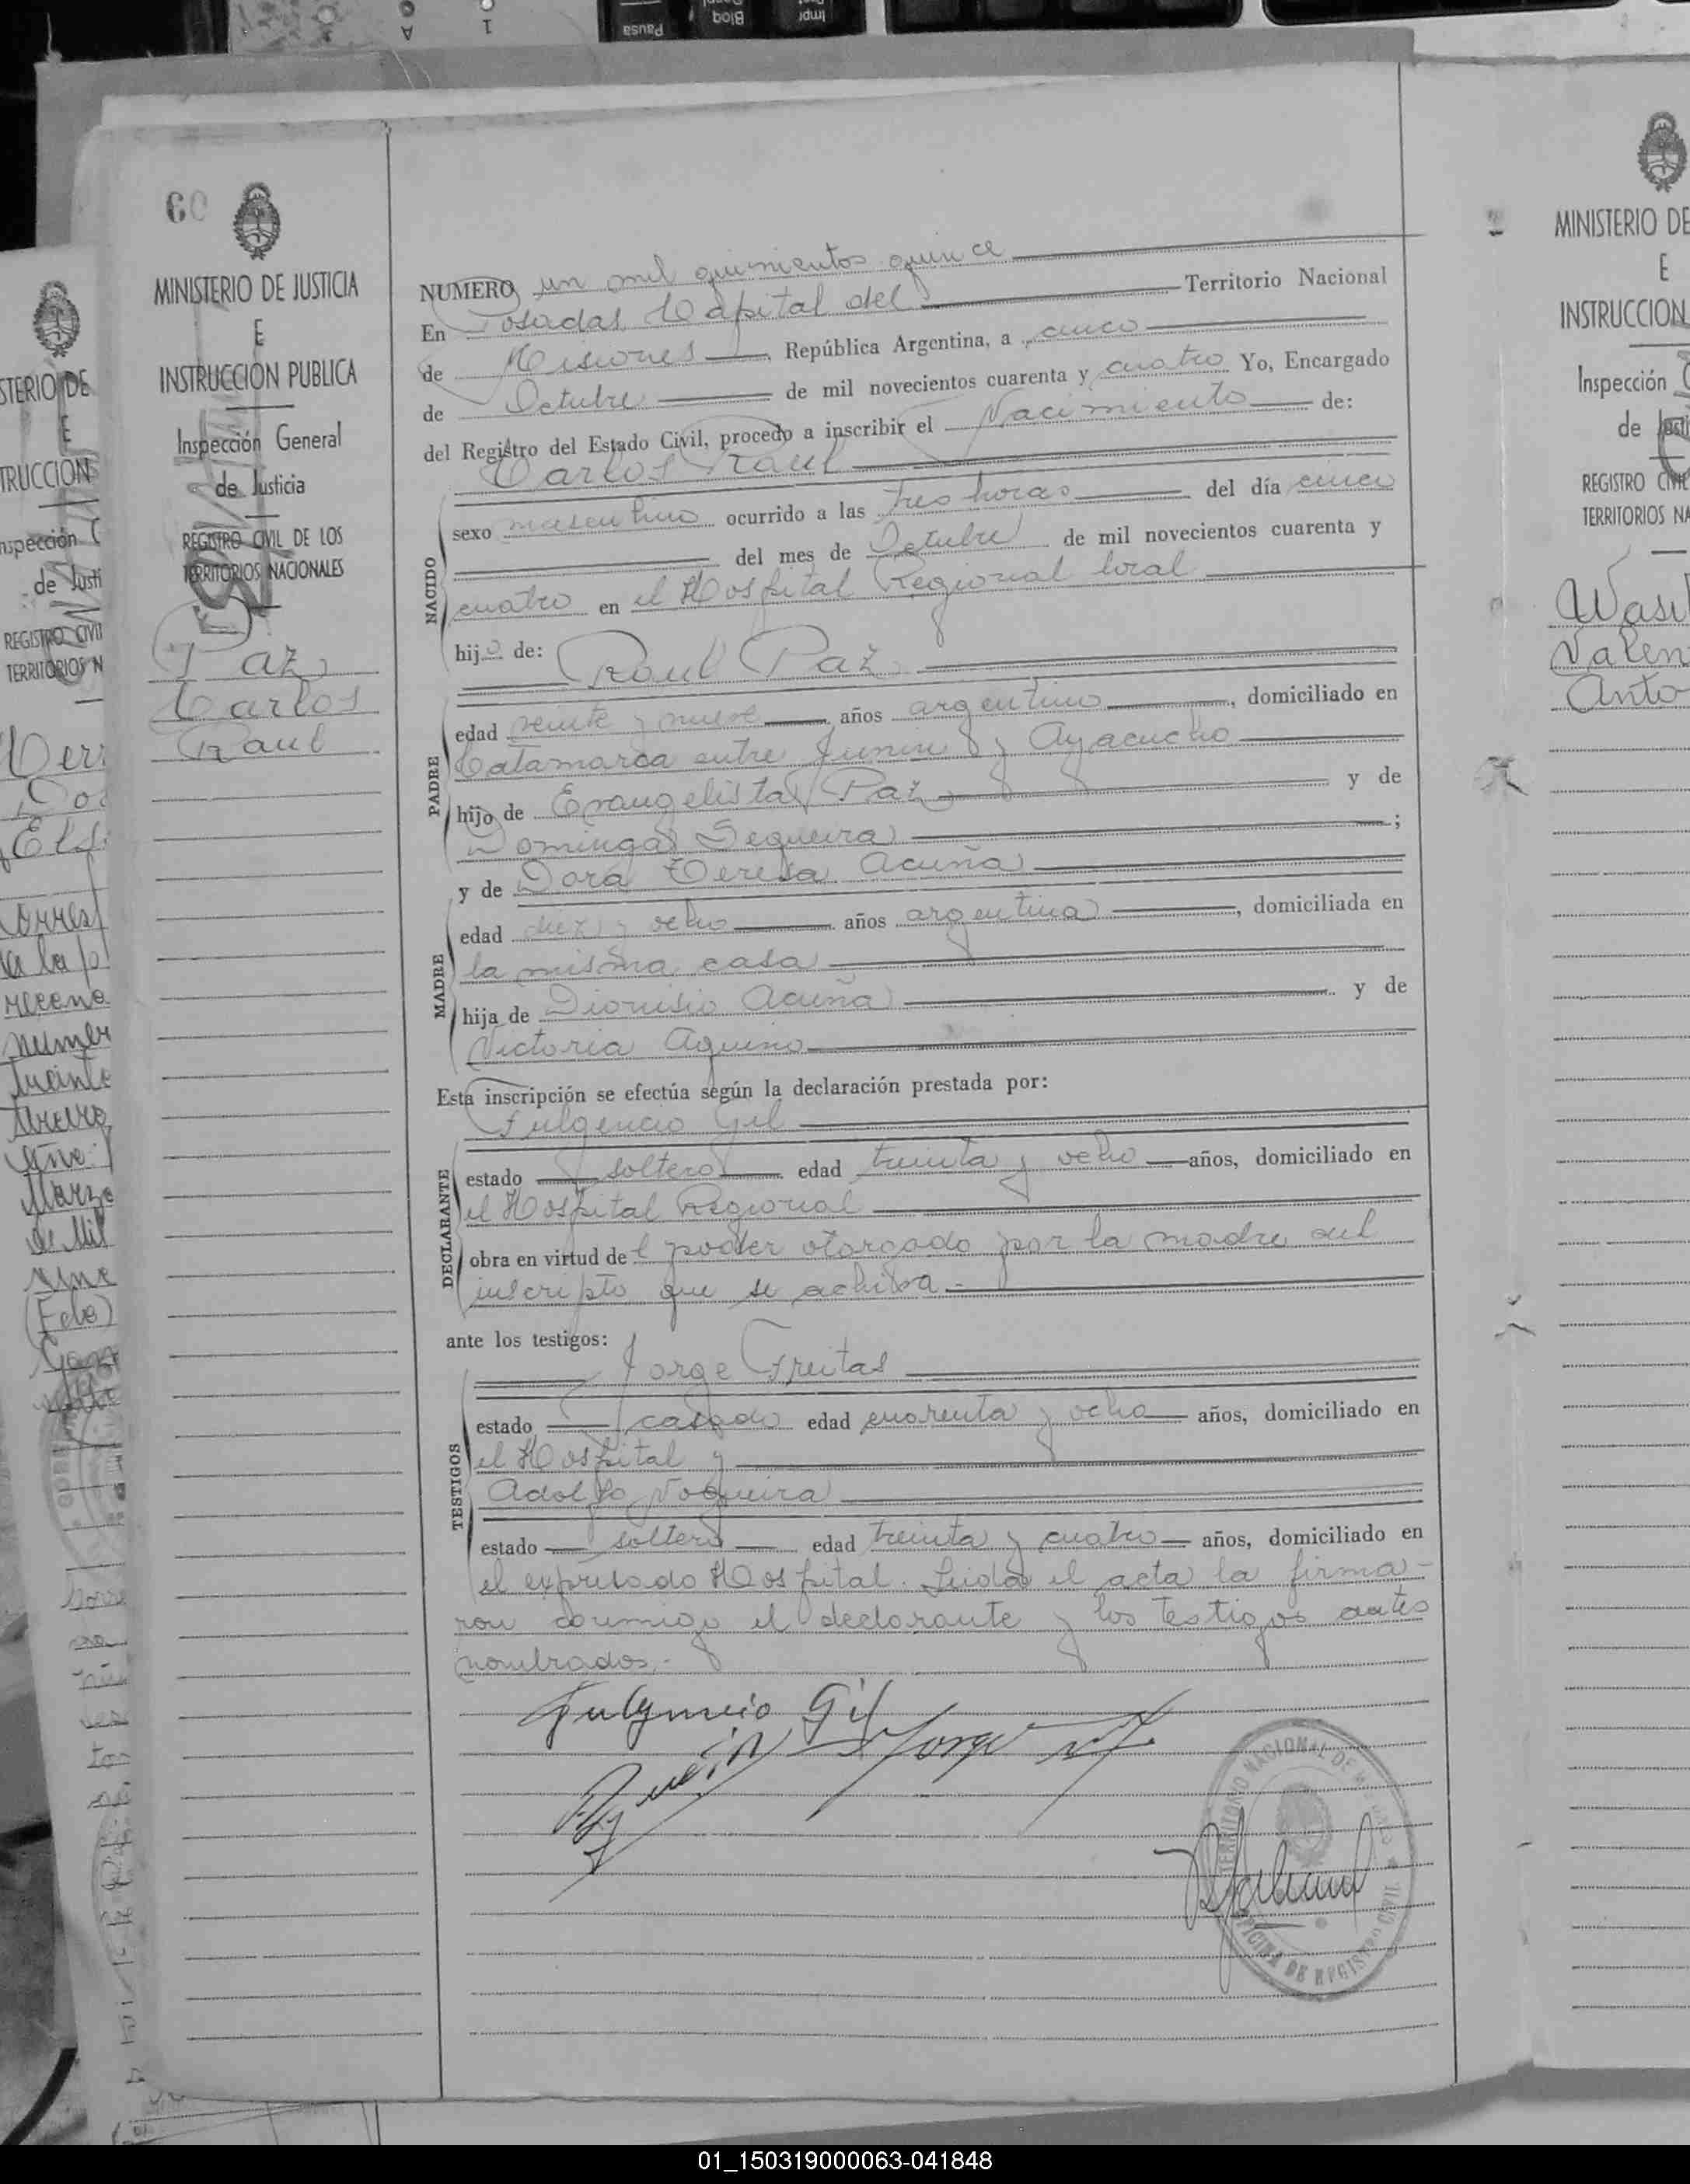 60
MINISTERIO DE JUSTICIA
E
INSTRUCCION PUBLICA
Inspección General
de Justicia
REGISTRO CIVIL DE LOS
TERRITORIOS NACIONALES
Paz
Carlos
Raul
NUMERO un mil quinientos quince
En Posadas Capital del Territorio Nacional
de Misiones, República Argentina, a cinco
de Octubre de mil novecientos cuarenta y cuatro Yo, Encargado
del Registro del Estado Civil, procedo a inscribir el Nacimiento de:
Carlos Raul
NACIDO
sexo masculino ocurrido a las tres horas del día cinco
del mes de Octubre de mil novecientos cuarenta y
cuatro en el Hospital Regional local
hijo de:
Raul Paz
PADRE
edad veinte y nueve años argentino, domiciliado en
Catamarca entre Junin y Ayacucho
hijo de Evangelista Paz y de
Dominga Sequeira;
y de Dora Teresa Acuña
MADRE
edad diez y ocho años argentina, domiciliada en
la misma casa
hija de Dionisio Acuña y de
Victoria Aquino
Esta inscripción se efectúa según la declaración prestada por:
Fulgencio Gil
DECLARANTE
estado soltero edad treinta y ocho años, domiciliado en
el Hospital Regional
obra en virtud del poder otorgado por la madre del
inscripto que se achiva.-
ante los testigos:
Jorge Freitas
TESTIGOS
estado casado edad cuarenta y ocho años, domiciliado en
el Hospital y
Adolfo Nogueira
estado soltero edad treinta y cuatro años, domiciliado en
el expresado Hospital. Leida el acta la firma-
ron conmigo el declarante y los testigos antes
nombrados.-
Fulgencio Gil
Jorge
TERRITORIO NACIONAL DE MISIONES
OFICINA DE REGISTRO CIVIL
MINISTERIO DE
E
INSTRUCCION
Inspección
de Justi
REGISTRO CIVIL
TERRITORIOS NA
Valen
Anto
01_150319000063-041848